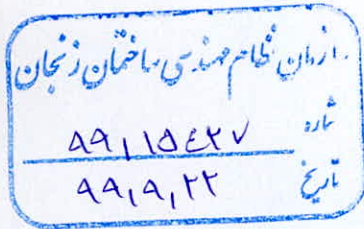 سازمان نظام مهندسی ساختمان زنجان
شماره ۹۹/۱۵۴۲۷
تاریخ ۹۹/۹/۲۲